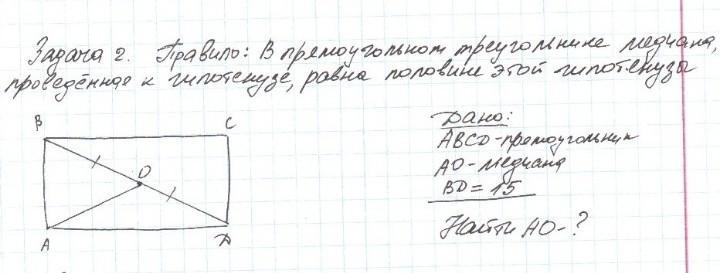 Задача 2. Правило: В прямоугольном треугольнике медиана,
проведённая к гипотенузе, равна половине этой гипотенузы
B
C
O
A
D
Дано:
ABCD - прямоугольник
AO - медиана
BD = 15
Найти AO - ?